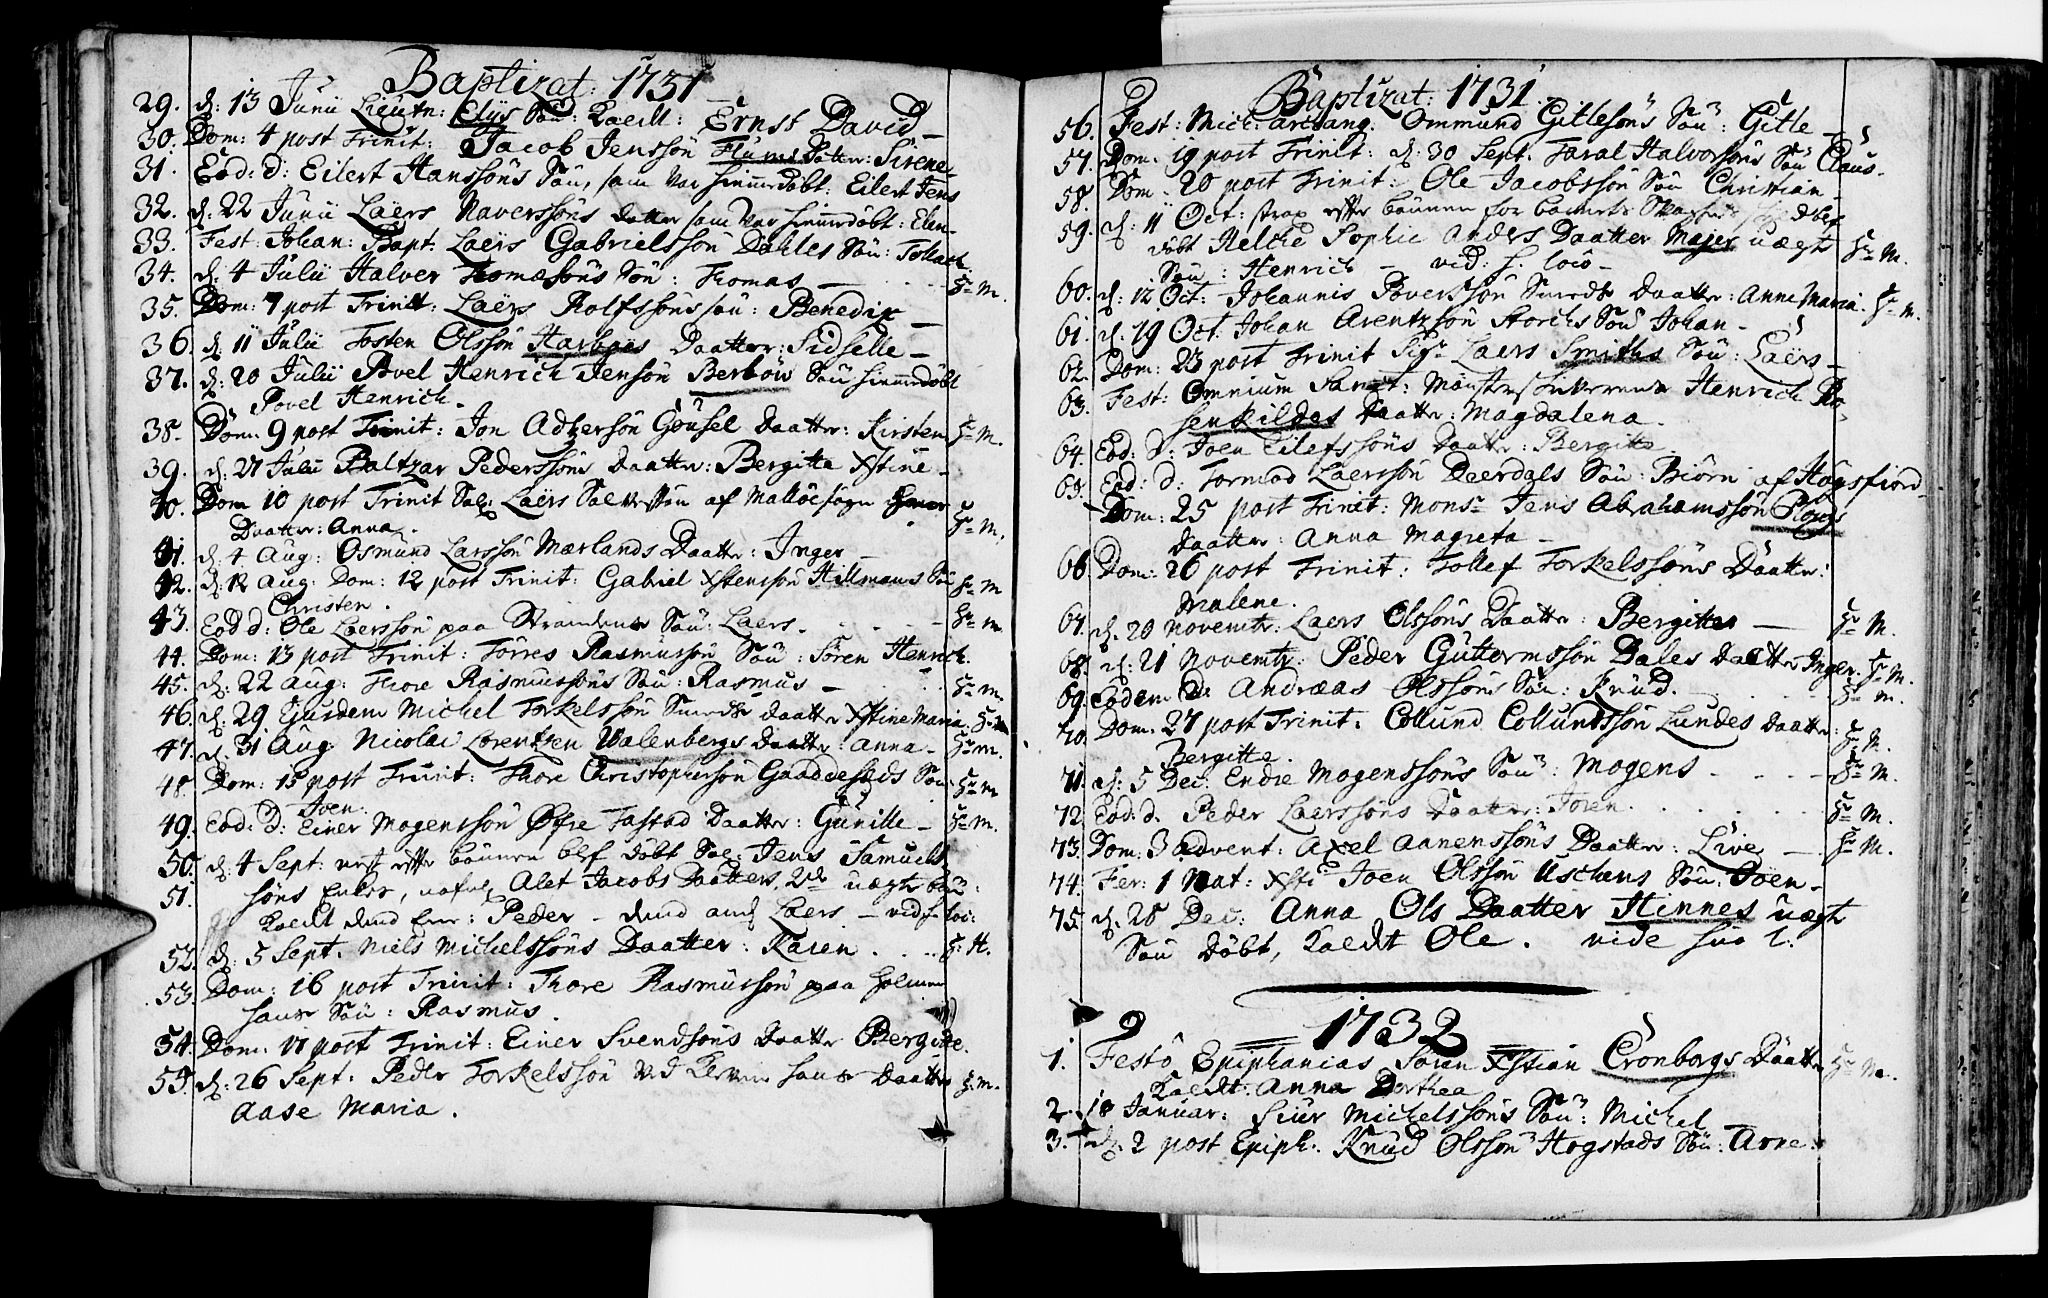 Baptizat: 1731
29. d: 13 Junii Lieutn: Elÿs Søn: Kaedt: Ernst David
30. Dom: 4 post Trinit: Jacob Jenssøn Daatter: Sirene
31. Eod: d: Eilert Hanssøns Søn, som var hiemedøbt: Eilert Jens
32. d: 22 Junii Laërs Naverssøns datter som var hiemedøbt: Elen
33. Fest: Johan: Bapt: Laërs Gabrielssøn Dahles Søn:
34. d: 4 Julii Halver Thomæsøns Søn: Thomas — H: M.
35. Dom: 7 post Trinit: Laërs Rolfssøns søn: Benedix
36. d: 11 Julii Tosten Olssøn Daatter: Sidselle
37. d: 20 Julii Povel Henrich Jensøn Berbow Søn hiemedøbt
Povel Henrich.
38. Dom: 9 post Trinit: Jon Adzersøn Gøusel Daatter: Kirsten H: M.
39. d: 27 Julii Baltzar Pederssøns Daatter: Bergitte Xstine
40. Dom 10 post Trinit Sal: Laërs af sogn
Daatter: Anna. H: M.
41. d. 4 Aug: Osmund Larssøn Mærlands Daatter: Inger
42. d: 12 Aug: Dom: 12 post Trinit: Gabriel Xstenssøn Hillmans Søn H: M
Christen.
43. Eod d: Ole Laerssøn paa Strandens Søn: Laers. H: M.
44. Dom: 13 post Trinit: Torres Rasmussøn Søn: Søren Henrich.
45. d: 22 Aug: Thore Rasmussøns Søn: Rasmus — H: M.
46. d. 29 Ejusdem Michel Torkelssøn Smeds daatter Xstine Maria. H: M
47. d. 31 Aug Nicolai Lorentzen Walenbergs Daatter: Anna. H: M.
48. Dom: 15 post Trinit: Thore Christophersøn Søn H: M
Joen.
49. Eod: d: Einer Mogenssøn Øfre Tastad Daatter: Gunille H: M.
50. d: 4 Sept: nest efter bønnen blef døbt Sal: Jens Samuels
51. søns Enke, nafnl. Alet Jacobs Daatters, 2de uægte børn:
Kaedt dend Ene: Peder - dend and Laers — vid: h loc:
52. d: 5 Sept. Niels Michelssøns Daatter: Karen. H: H.
53. Dom: 16 post Trinit: Thore Rasmussøn paa Holmen
hans Søn: Rasmus.
54. Dom: 17 post Trinit: Einer Svendsøns Daatter Bergitte.
55. d: 26 Sept: Peder Torkelssøn ved Kerven hans Daatter H: M.
Aase Maria.
Baptizat: 1731
56. Fest: Mich: archang: Ommund Gitlesøns Søn: Gitle
57. Dom. 19 post Trinit: d: 30 Sept. Taral Halvorsøns Søn Claus.
58. Dom. 20 post Trinit: Ole Jacobssøn Søn Christian
59. d: 11 Oct: strax efter bønnen for blef
døbt Helche Sophie Anders Daatter Majer uægte H: M.
Søn: Henrich — vid: h loco
60. d: 12 Oct: Johannis Poverssøn Smeds Daatter: Anne Maria. H: M.
61. d. 19 Oct. Johan Arentzsøn Storchs Søn Johan
62. Dom: 23 post Trinit Sigr Laers Smiths Søn: Laërs
63. Fest: Omnium Sanct: Mønsterskriverens Henrich Ro-
senkildes Daatter: Magdalena.
64. Eod: d: Joen Eilefssøns Daatter: Bergitte
65. Eod: d: Tormod Laerssøn Deerdals Søn: Biørn af Høgsfiord
Dom: 25 post Trinit: Monsr Jens Abrahamssøn Plougs
Daatter: Anna Magreta
66. Dom: 26 post Trinit: Tollef Torkelssøns Daatter:
Malene.
67. d. 20 Novembr: Laers Olssøns Daatter: Bergitte — H: M.
68. d: 21 Novembr: Peder Guttormssøn Dales Daatter Inger. H: M.
69. Eodem Die Andræas Olssøns Søn: Knud. H: M.
70. Dom. 27 post Trinit: Collund Collundssøn Lundes Daatter: H: M.
Bergitte.
71. d: 5 Dec: Endre Mogenssøns Søn: Mogens. H: M.
72 Eod: d. Peder Laerssøns Daatter: Joren. H: M.
73. Dom: 3 advent: Axel Aanenssøns Daatter: Live H: M.
74. Fer: 1 Nat: Xsti Joen Olssøn Søn: Joen
75. d. 28 Dec: Anna Ols Daatter Hennes uægte
Søn Døbt, Kaedet Ole. vide suo l:
1732
1. Festo Epiphanias Søren Xstian Cronborgs Daatter H: M.
Kaedt: Anna Dorthea
2. 18 Januar: Siur Michelssøns Søn: Michel
3. d. 2 post Epiph: Knud Olssøn Hogstads Søn: Arne